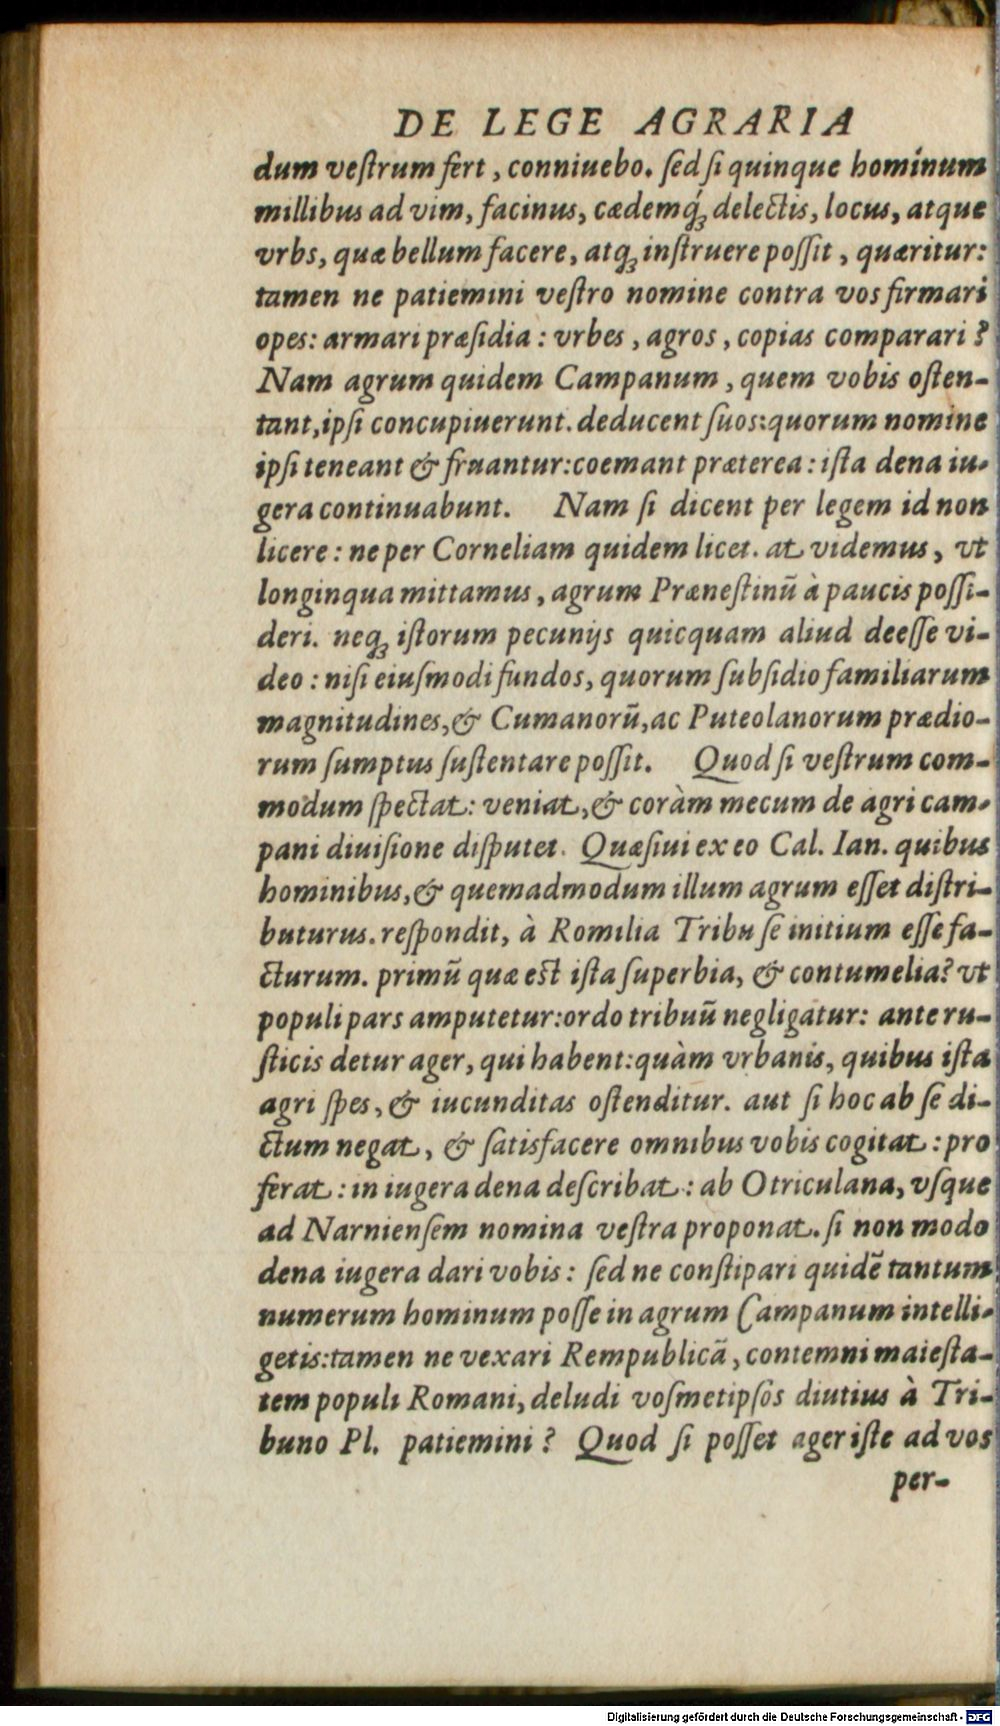 DE LEGE AGRARIA
dum veſtrum fert, conniuebo. ſed ſi quinque hominum
millibus ad vim, facinus, cædemq́ꝫ delectis, locus, atque
vrbs, quæ bellum facere, atqꝫ inſtruere poſſit, quæritur:
tamen ne patiemini veſtro nomine contra vos firmari
opes: armari præſidia: vrbes, agros, copias comparari?
Nam agrum quidem Campanum, quem vobis oſten-
tant, ipſi concupiuerunt. deducent ſuos: quorum nomine
ipſi teneant & fruantur: coemant præterea: iſta dena iu-
gera continuabunt. Nam ſi dicent per legem id non
licere: ne per Corneliam quidem licet. at videmus, vt
longinqua mittamus, agrum Præneſtinū à paucis poſſi-
deri. neqꝫ iſtorum pecunijs quicquam aliud deeſſe vi-
deo: niſi eiuſmodi fundos, quorum ſubſidio familiarum
magnitudines, & Cumanorū, ac Puteolanorum prædio-
rum ſumptus ſuſtentare poſſit. Quod ſi veſtrum com-
modum ſpectat: veniat, & coràm mecum de agri cam-
pani diuiſione diſputet. Quæſiui ex eo Cal. Ian. quibus
hominibus, & quemadmodum illum agrum eſſet diſtri-
buturus. reſpondit, à Romilia Tribu ſe initium eſſe fa-
cturum. primū quæ est iſta ſuperbia, & contumelia? vt
populi pars amputetur: ordo tribuū negligatur: ante ru-
ſticis detur ager, qui habent: quàm vrbanis, quibus iſta
agri ſpes, & iucunditas oſtenditur. aut ſi hoc ab ſe di-
ctum negat, & ſatisfacere omnibus vobis cogitat: pro
ferat: in iugera dena deſcribat: ab Otriculana, vſque
ad Narnienſem nomina veſtra proponat. ſi non modo
dena iugera dari vobis: ſed ne conſtipari quidē tantum
numerum hominum poſſe in agrum Campanum intelli-
getis: tamen ne vexari Rempublicā, contemni maieſta-
tem populi Romani, deludi voſmetipſos diutius à Tri-
buno Pl. patiemini? Quod ſi poſſet ager iſte ad vos
per-
Digitalisierung gefördert durch die Deutsche Forschungsgemeinschaft - DFG